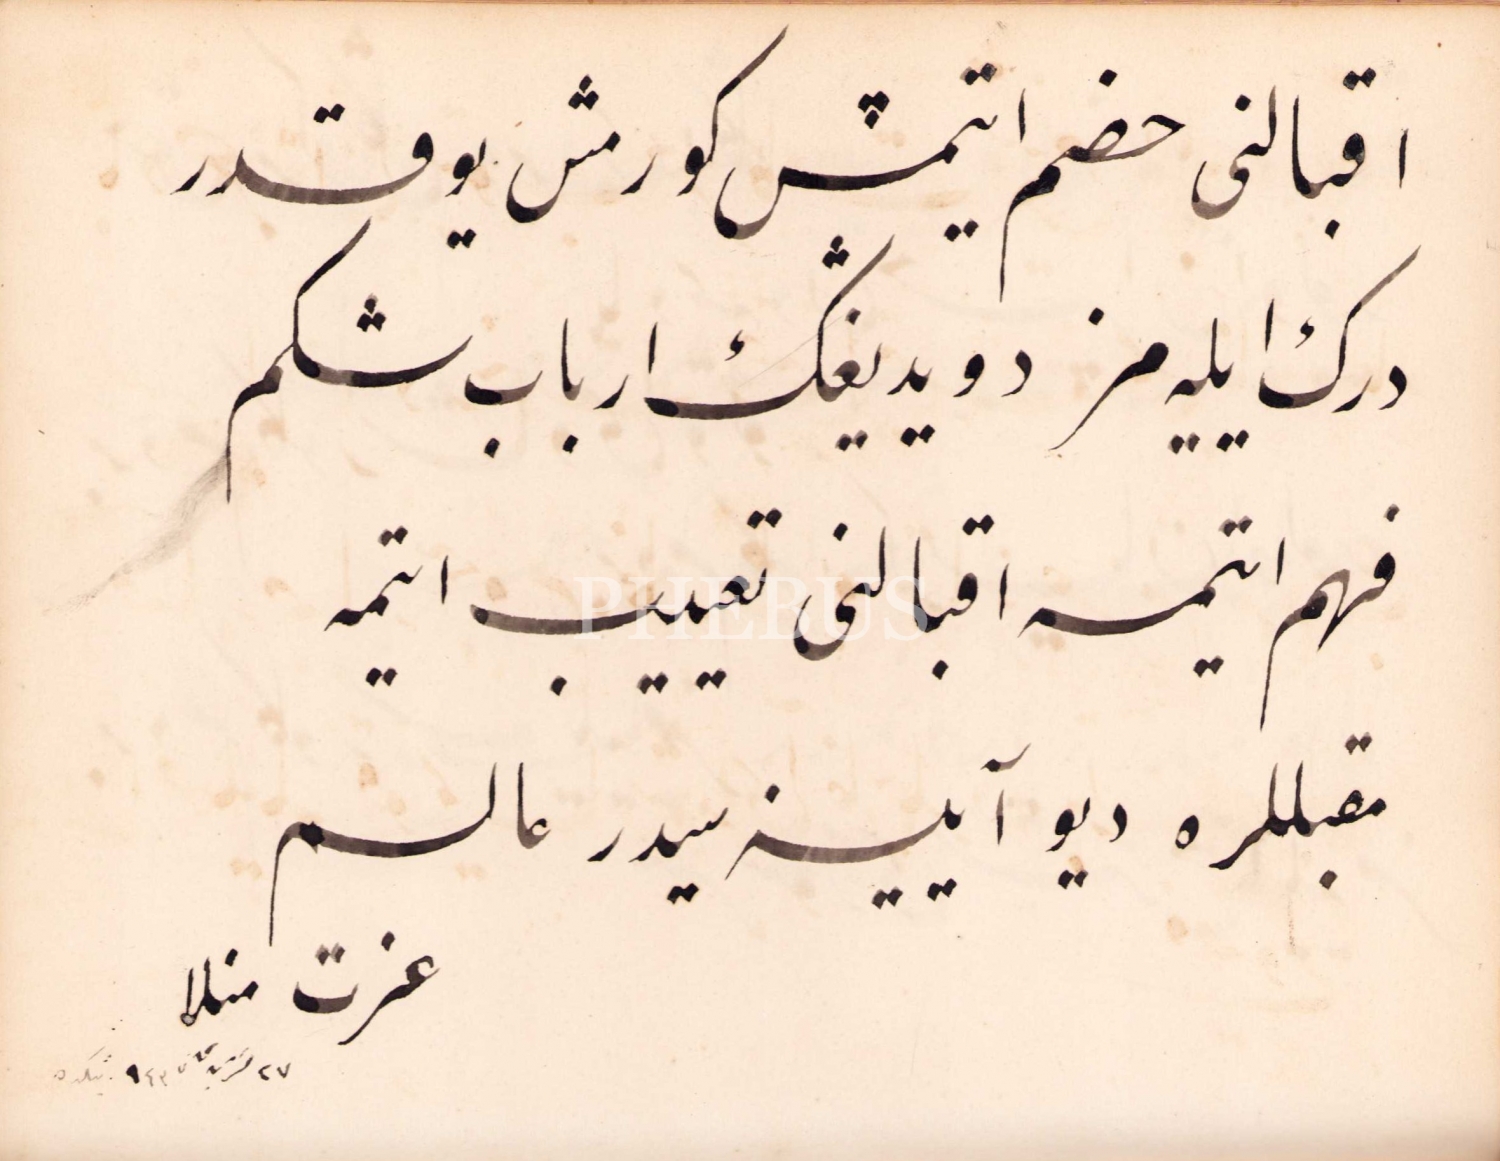 اقبالنی حضم ایتمش کورمش یوقدر
درك ایله مز دویدیغڭ ارباب شکم
فهم ایتمسه اقبالنی تعییب ایتمه
مقبللره دیو آیینه سیدر عالم
عزت منلا
٢٧
PHEBUS